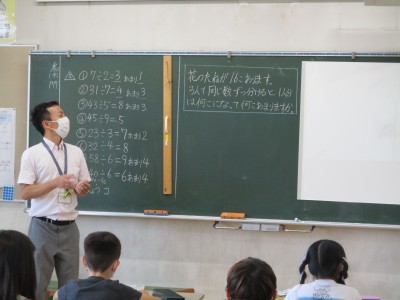 ①7÷2=3 あまり1
②31÷7=4 あまり3
③43÷5=8 あまり3
④45÷9=5
⑤23÷3=7 あまり2
⑥32÷4=8
58÷6=9 あまり4
40÷6=6 あまり4
花のたねが16こあります。
3人で同じ数ずつ分けると、1人分
は何こになって何こあまりますか。